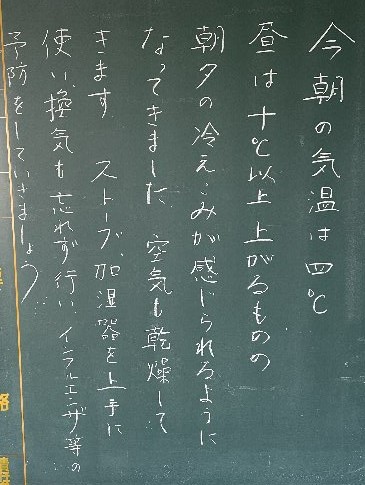 今朝の気温は四℃
昼は十℃以上上がるものの
朝夕の冷えこみが感じられるように
なってきました。空気も乾燥して
きます。ストーブ、加湿器を上手に
使い、換気も忘れず行い、インフルエンザ等の
予防をしていきましょう。